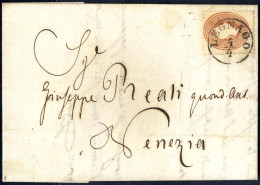 LEGNAGO
4
Sigr
Giuseppe Reali quond. Ant.
Venezia